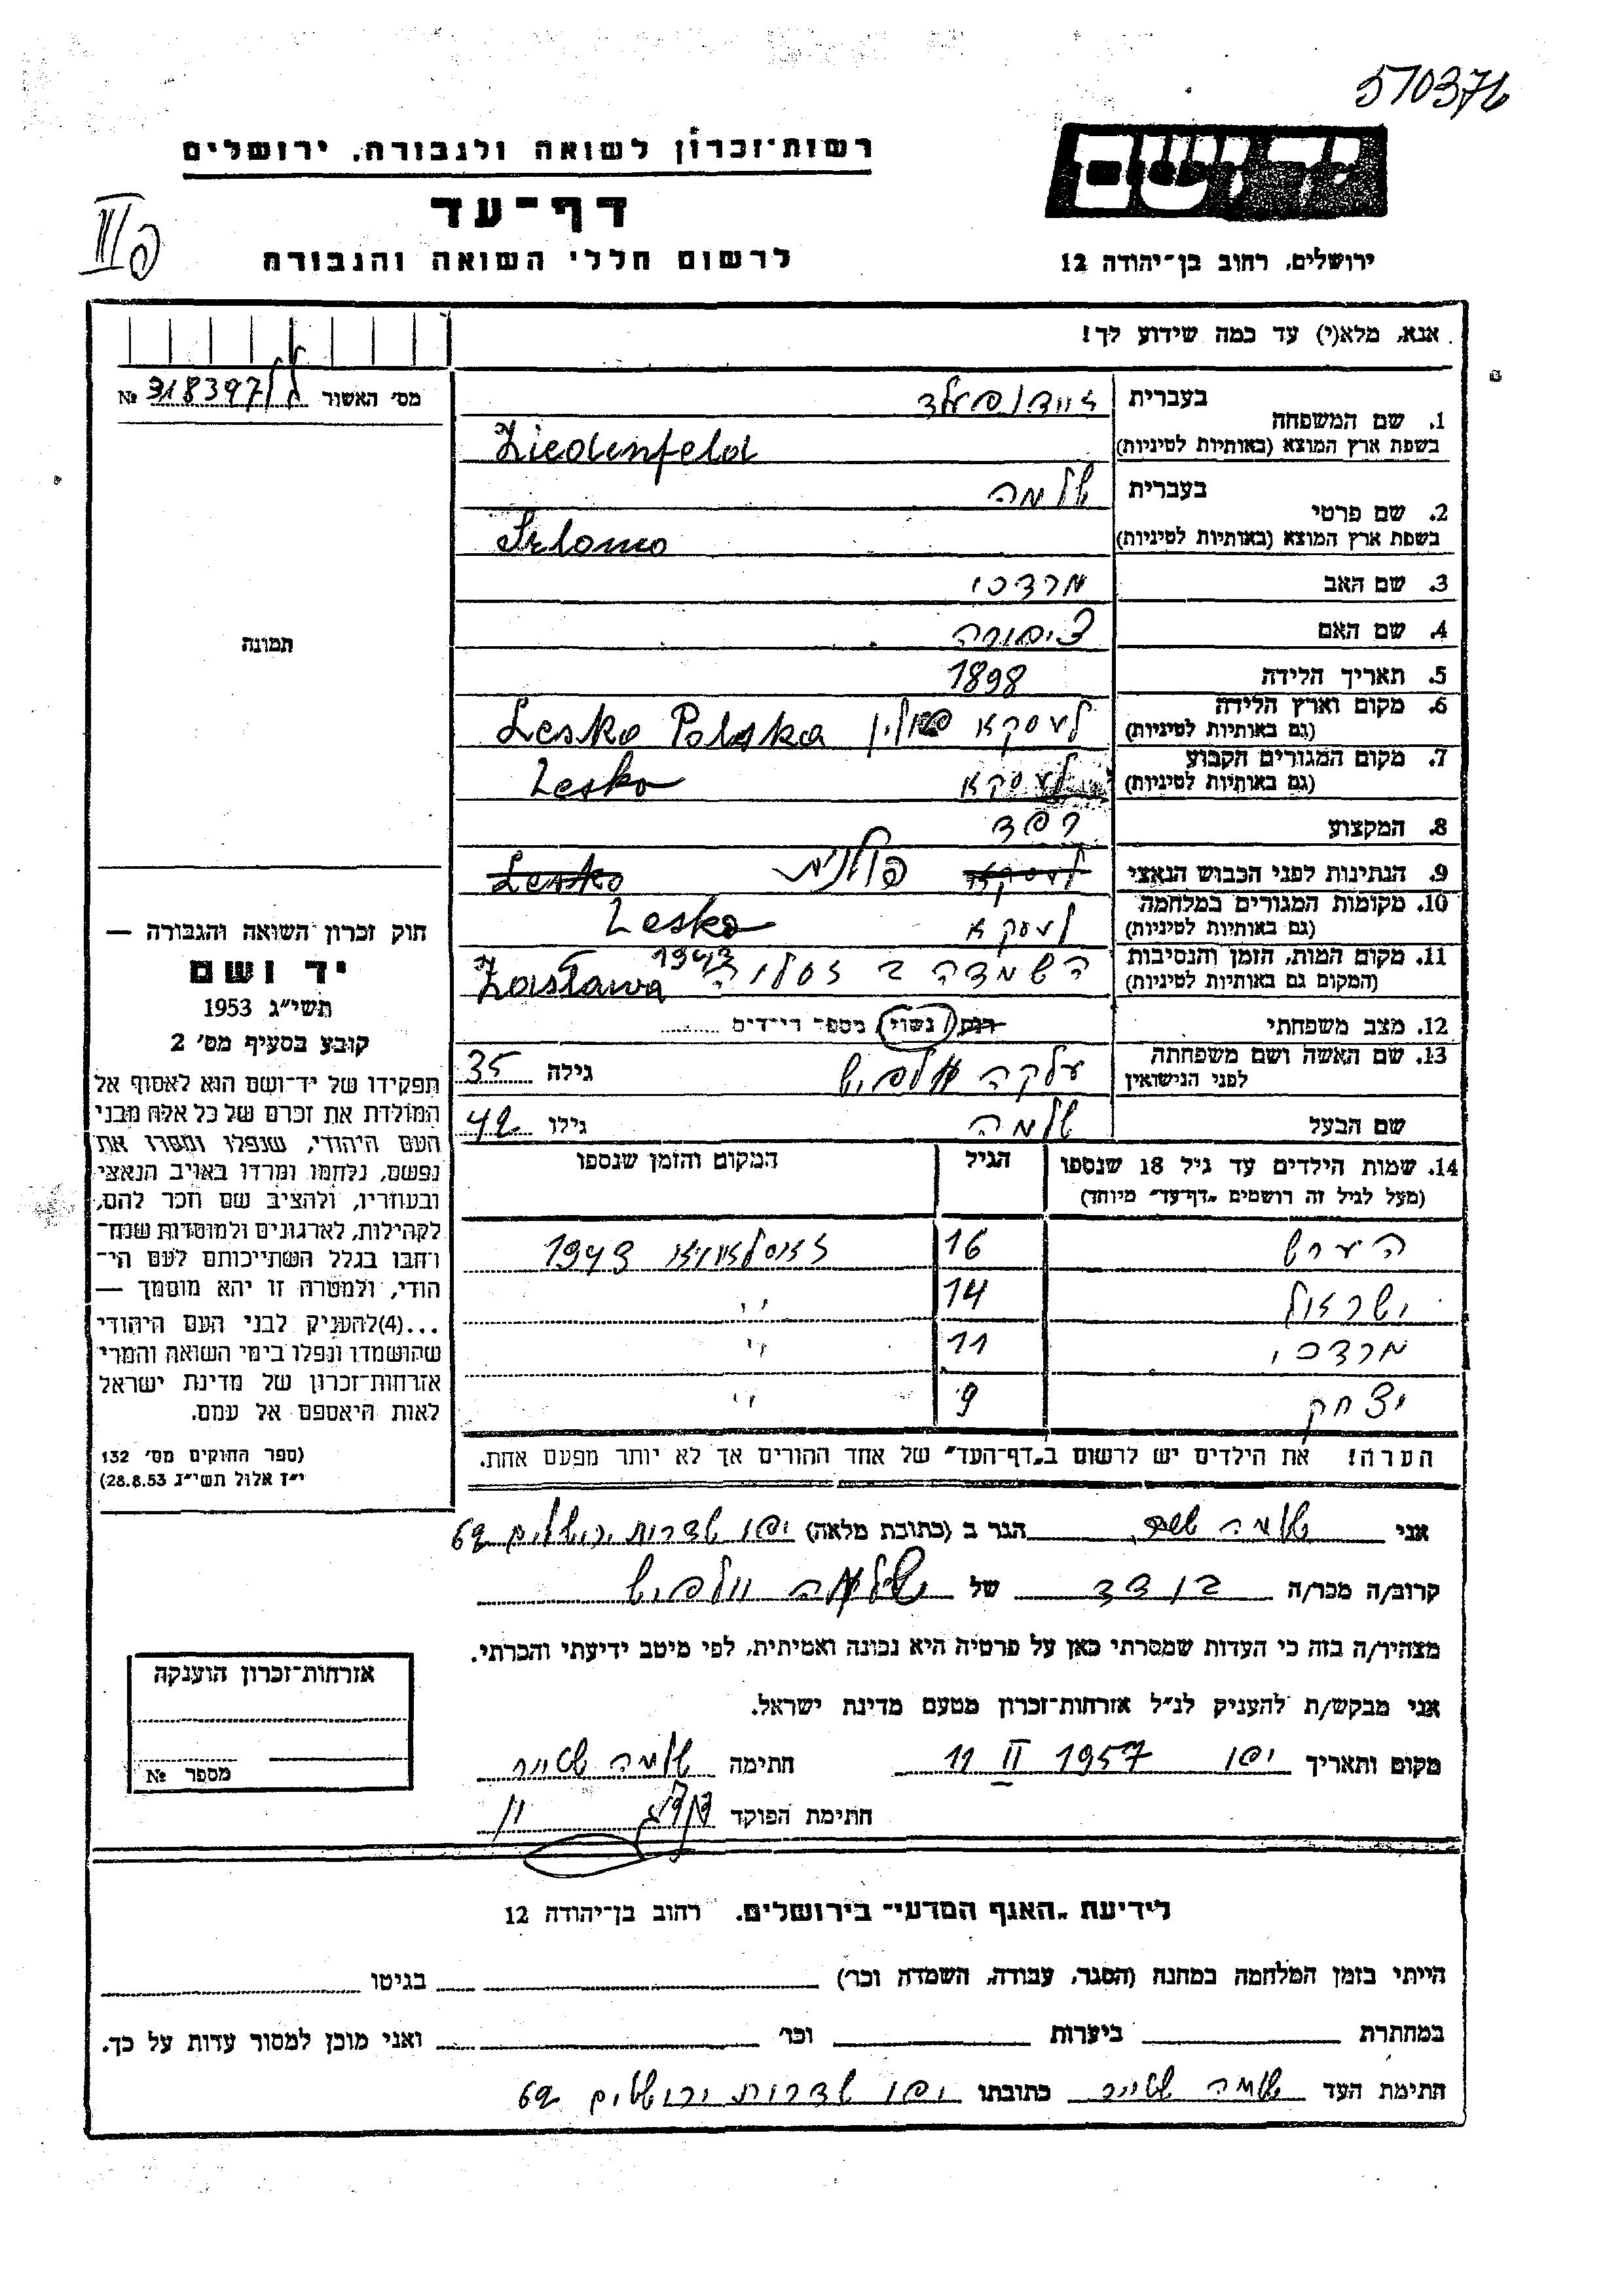 570376
רשות־זכרון לשואה ולגבורה, ירושלים
יד ושם
דף־עד
לרשום חללי השואה והגבורה
ירושלים, רחוב בן־יהודה 12
אנא, מלא(י) עד כמה שידוע לך!
מס׳ האשור № 318397
1. שם המשפחה
בעברית
בשפת ארץ המוצא (באותיות לטיניות) Ziedenfeld
2. שם פרטי
בעברית שלמה
בשפת ארץ המוצא (באותיות לטיניות) Szlomo
3. שם האב מרדכי
4. שם האם ציפורה
5. תאריך הלידה 1898
6. מקום וארץ הלידה (גם באותיות לטיניות) לעסקא פולין Lesko Polska
7. מקום המגורים הקבוע (גם באותיות לטיניות) לעסקא Lesko
8. המקצוע רפד
9. הנתינות לפני הכבוש הנאצי לעסקא פולנית Lesko
10. מקומות המגורים במלחמה (גם באותיות לטיניות) לעסקא Lesko
11. מקום המות, הזמן והנסיבות (המקום גם באותיות לטיניות) השמדה ב זסלוה 1943 Zasława
12. מצב משפחתי רוק / נשוי / מספר הילדים
13. שם האשה ושם משפחתה לפני הנישואין עלקה גילה 35
שם הבעל שלמה גילו 42
14. שמות הילדים עד גיל 18 שנספו (מעל לגיל זה רושמים „דף־עד״ מיוחד) הגיל המקום והזמן שנספו
הערש 16 זאסלאווא 1943
ישראל 14 ״
מרדכי 11 ״
יצחק 9 ״
הערה! את הילדים יש לרשום ב„דף־העד״ של אחד ההורים אך לא יותר מפעם אחת.
תמונה
חוק זכרון השואה והגבורה —
יד ושם
תשי״ג 1953
קובע בסעיף מס׳ 2
תפקידו של יד־ושם הוא לאסוף אל
המולדת את זכרם של כל אלה מבני
העם היהודי, שנפלו ומסרו את
נפשם, נלחמו ומרדו באויב הנאצי
ובעוזריו, ולהציב שם וזכר להם,
לקהילות, לארגונים ולמוסדות שנח־
רבו בגלל השתייכותם לעם הי־
הודי, ולמטרה זו יהא מוסמך —
...(4)להעניק לבני העם היהודי
שהושמדו ונפלו בימי השואה והמרי
אזרחות־זכרון של מדינת ישראל
לאות היאספם אל עמם.
(ספר החוקים מס׳ 132
י״ז אלול תשי״ג 28.8.53)
אני שלמה הגר ב (כתובת מלאה) יפו שדרות ירושלים 69
קרוב/ה מכר/ה בן דד של
מצהיר/ה בזה כי העדות שמסרתי כאן על פרטיה היא נכונה ואמיתית, לפי מיטב ידיעתי והכרתי.
אני מבקש/ת להעניק לנ״ל אזרחות־זכרון מטעם מדינת ישראל.
מקום ותאריך יפו 11 II 1957 חתימה שלמה
חתימת הפוקד
אזרחות־זכרון הוענקה
מספר №
לידיעת „האגף המדעי״ בירושלים. רחוב בן־יהודה 12
הייתי בזמן המלחמה במחנה (הסגר, עבודה, השמדה וכר׳) בגיטו
במחתרת ביערות וכר׳ ואני מוכן למסור עדות על כך.
חתימת העד שלמה כתובתו יפו שדרות ירושלים 69